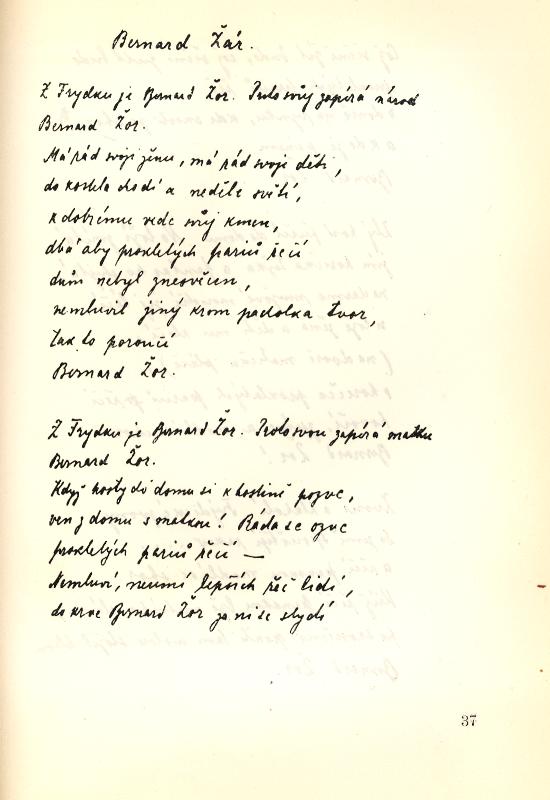 Bernard Žár.
Z Frydku je Bernard Žor. Proto svůj zapírá národ
Bernard Žor.
Má rád svoji ženu, má rád svoje děti,
do kostela chodí a neděle světí,
k dobrému vede svůj kmen,
dbá aby prokletých pariů řečí
dům nebyl znesvěcen,
nemluvil jiný krom padolka tvor,
tak to poroučí
Bernard Žor.
Z Frydku je Bernard Žor. Proto svou zapírá matku
Bernard Žor.
Když hosty do domu si k hostině pozve,
ven z domu s matkou! Ráda se ozve
prokletých pariů řečí —
Nemluví, neumí lepších řeč lidí,
do krve Bernard Žor za ni se stydí
37